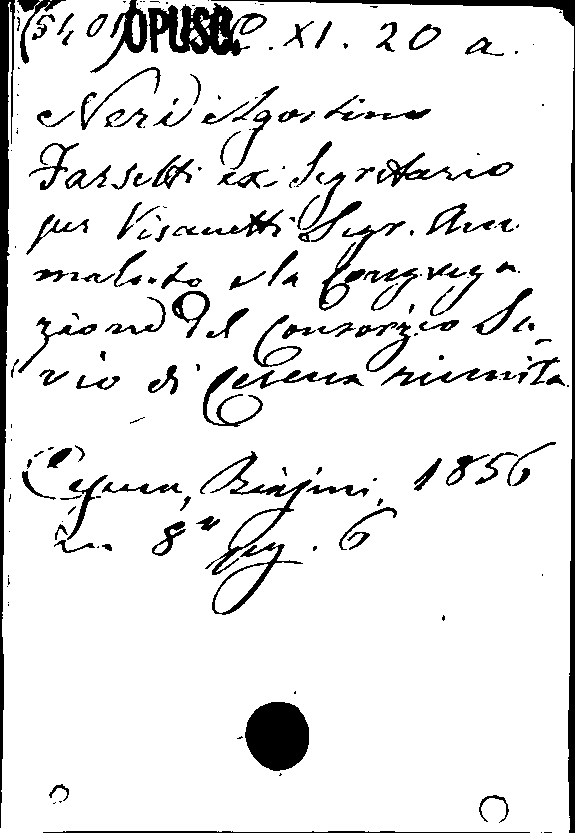 (5401) OPUSC. O. XI. 20 a.
Neri Agostino
Farsetti ex Segretario
per Visanetti Segr. Am
malato e la Congrega
zione del Consorzio Sa-
vio di Cesena riunita
Cesena, Biasini, 1856
in 8° pag. 6